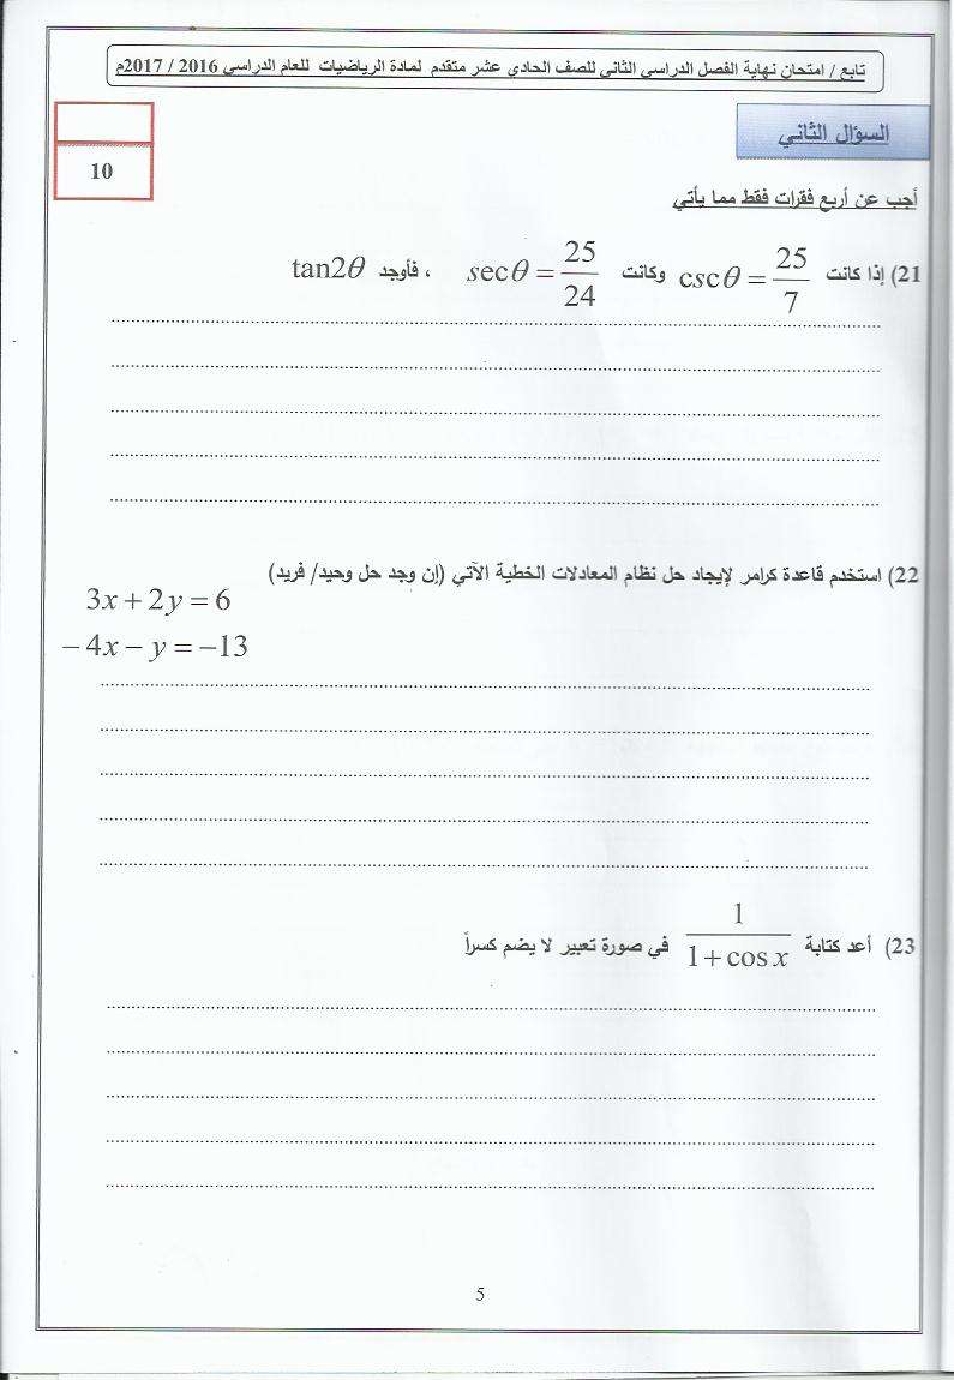 تابع / امتحان نهاية الفصل الدراسي الثاني للصف الحادي عشر متقدم لمادة الرياضيات للعام الدراسي 2016 / 2017م
السؤال الثاني
10
أجب عن أربع فقرات فقط مما يأتي
21) إذا كانت cscθ = 25/7 وكانت secθ = 25/24 ، فأوجد tan2θ
22) استخدم قاعدة كرامر لإيجاد حل نظام المعادلات الخطية الآتي (إن وجد حل وحيد/ فريد)
3x + 2y = 6
− 4x − y = −13
23) أعد كتابة 1/(1 + cos x) في صورة تعبير لا يضم كسراً
5